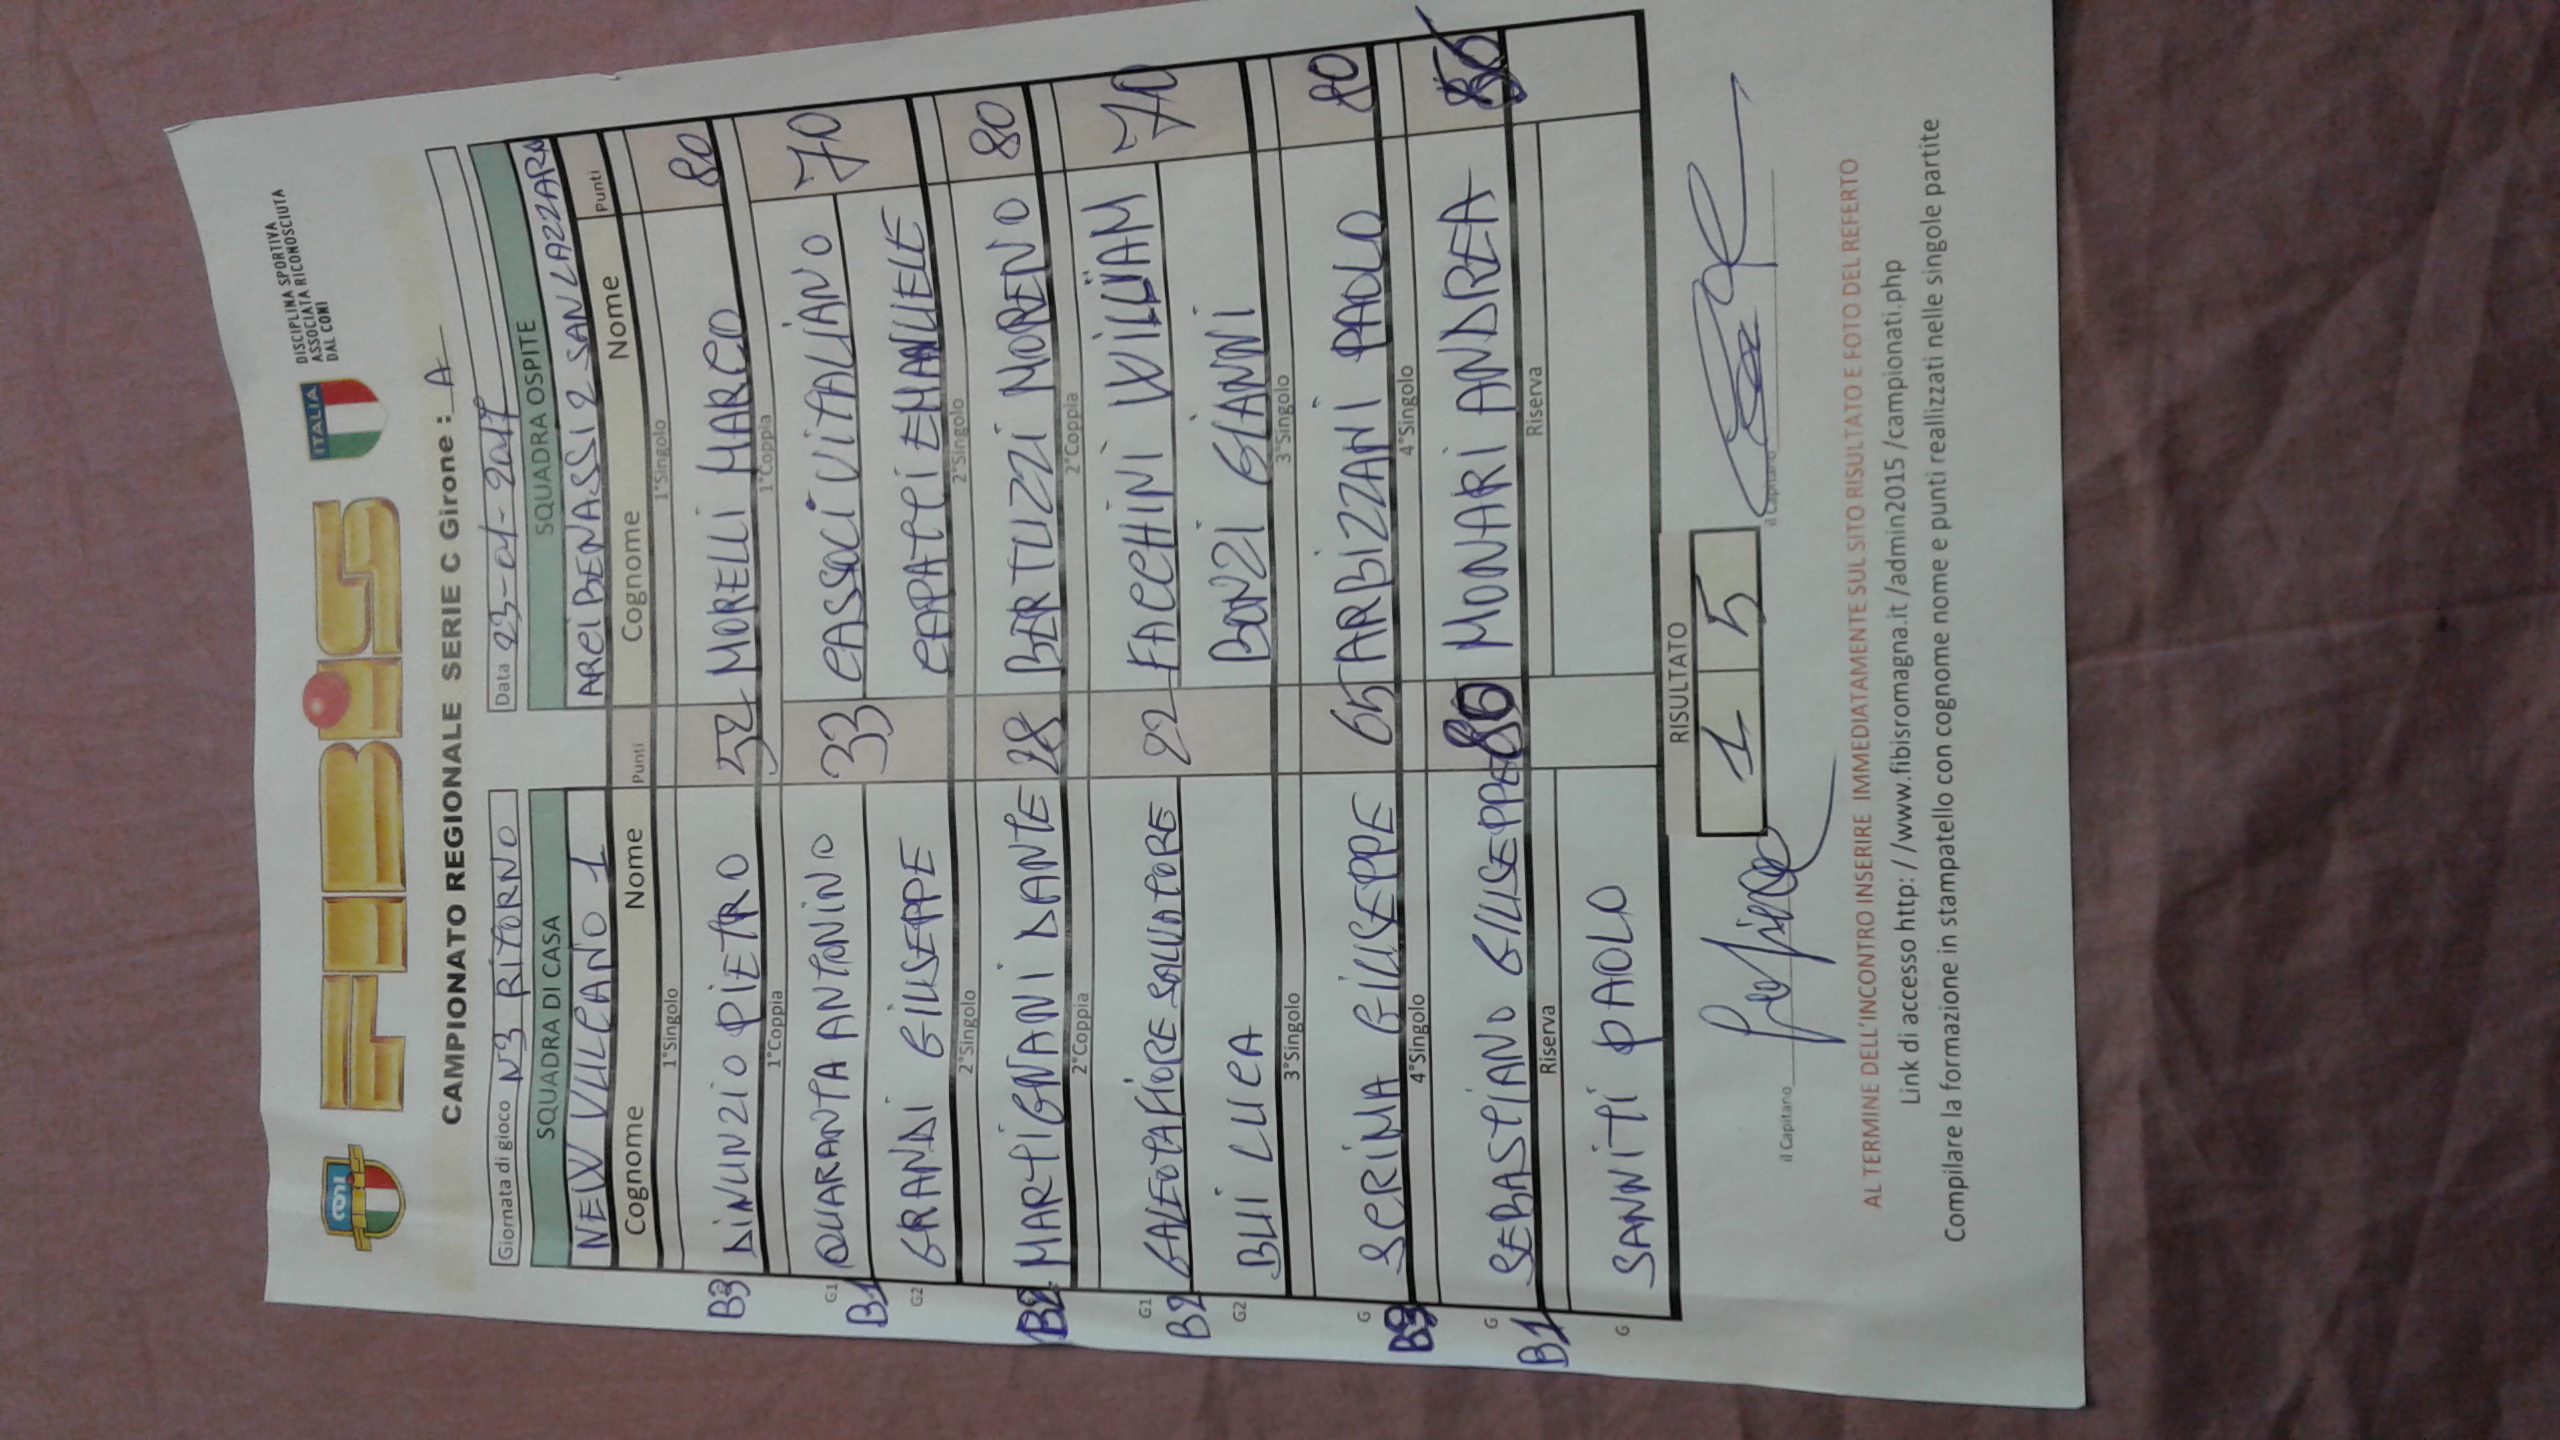 CONI
FIBiS
ITALIA
DISCIPLINA SPORTIVA
ASSOCIATA RICONOSCIUTA
DAL CONI
CAMPIONATO REGIONALE SERIE C Girone : A
Giornata di gioco N3 RITORNO Data 23-01-2017
SQUADRA DI CASA SQUADRA OSPITE
NEW VULCANO 1 ARCI BENASSI 2 SAN LAZZARO
Cognome Nome Punti Cognome Nome Punti
1°Singolo 1°Singolo
B3 DINUNZIO PIETRO 52 MORELLI MARCO 80
1°Coppia 1°Coppia
G1 QUARANTA ANTONINO 33 CASSOCI VITALIANO 70
B1
G2 GRANDI GIUSEPPE CAPATTI EMANUELE
2°Singolo 2°Singolo
B2 MARTIGNANI DANTE 28 BERTUZZI MORENO 80
2°Coppia 2°Coppia
G1 GALEOTAFIORE SALVATORE 22 FACCHINI WILLIAM 70
B2
G2 BUI LUCA BONZI GIANNI
3°Singolo 3°Singolo
G SCRIMA GIUSEPPE 65 TARBIZZANI PAOLO 80
B3
4°Singolo 4°Singolo
G SEBASTIANO GIUSEPPE 80 MONARI ANDREA
B1
Riserva Riserva
G SANNITI PAOLO
RISULTATO
1 5
il Capitano il Capitano
AL TERMINE DELL'INCONTRO INSERIRE IMMEDIATAMENTE SUL SITO RISULTATO E FOTO DEL REFERTO
Link di accesso http: / /www.fibisromagna.it /admin2015 /campionati.php
Compilare la formazione in stampatello con cognome nome e punti reallizzati nelle singole partite